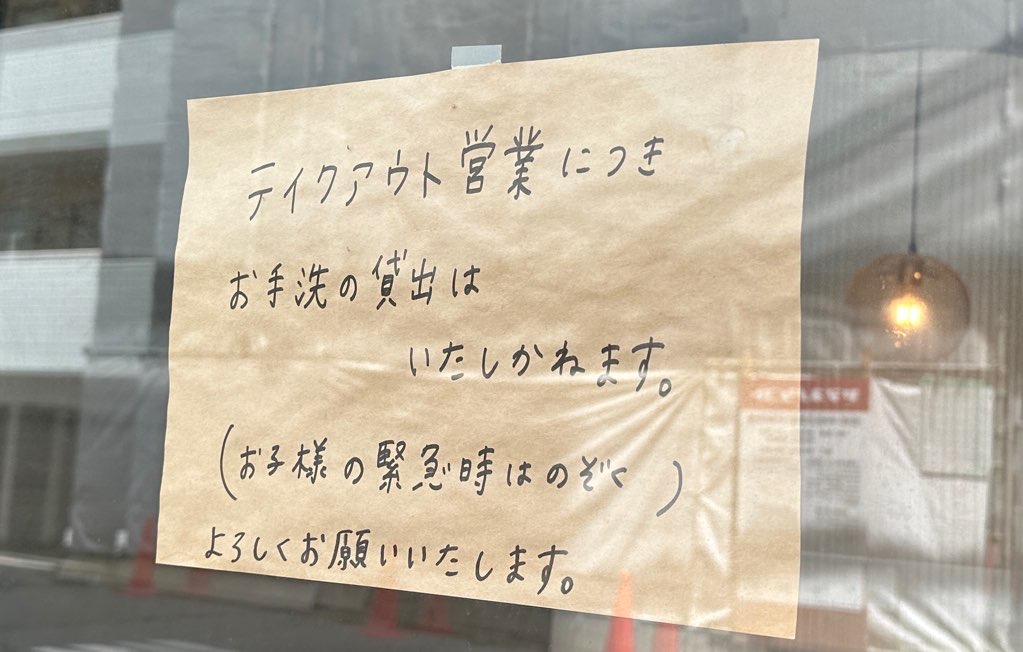 テイクアウト営業につき
お手洗の貸出は
いたしかねます。
(お子様の緊急時はのぞく)
よろしくお願いいたします。